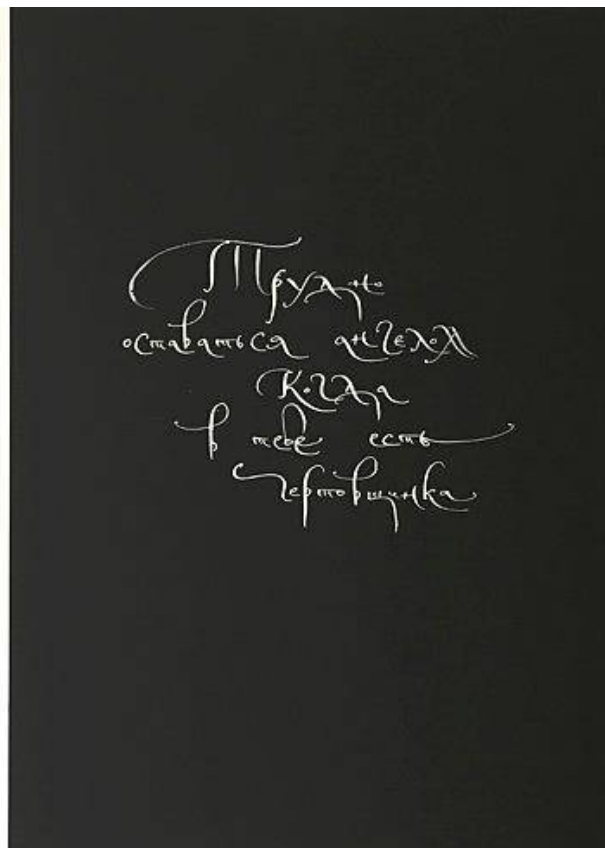 Трудно
оставаться ангелом
когда
в тебе есть
чертовщинка